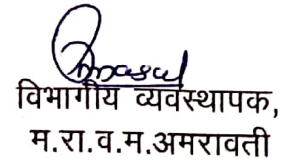 विभागीय व्यवस्थापक,
म.रा.व.म.अमरावती